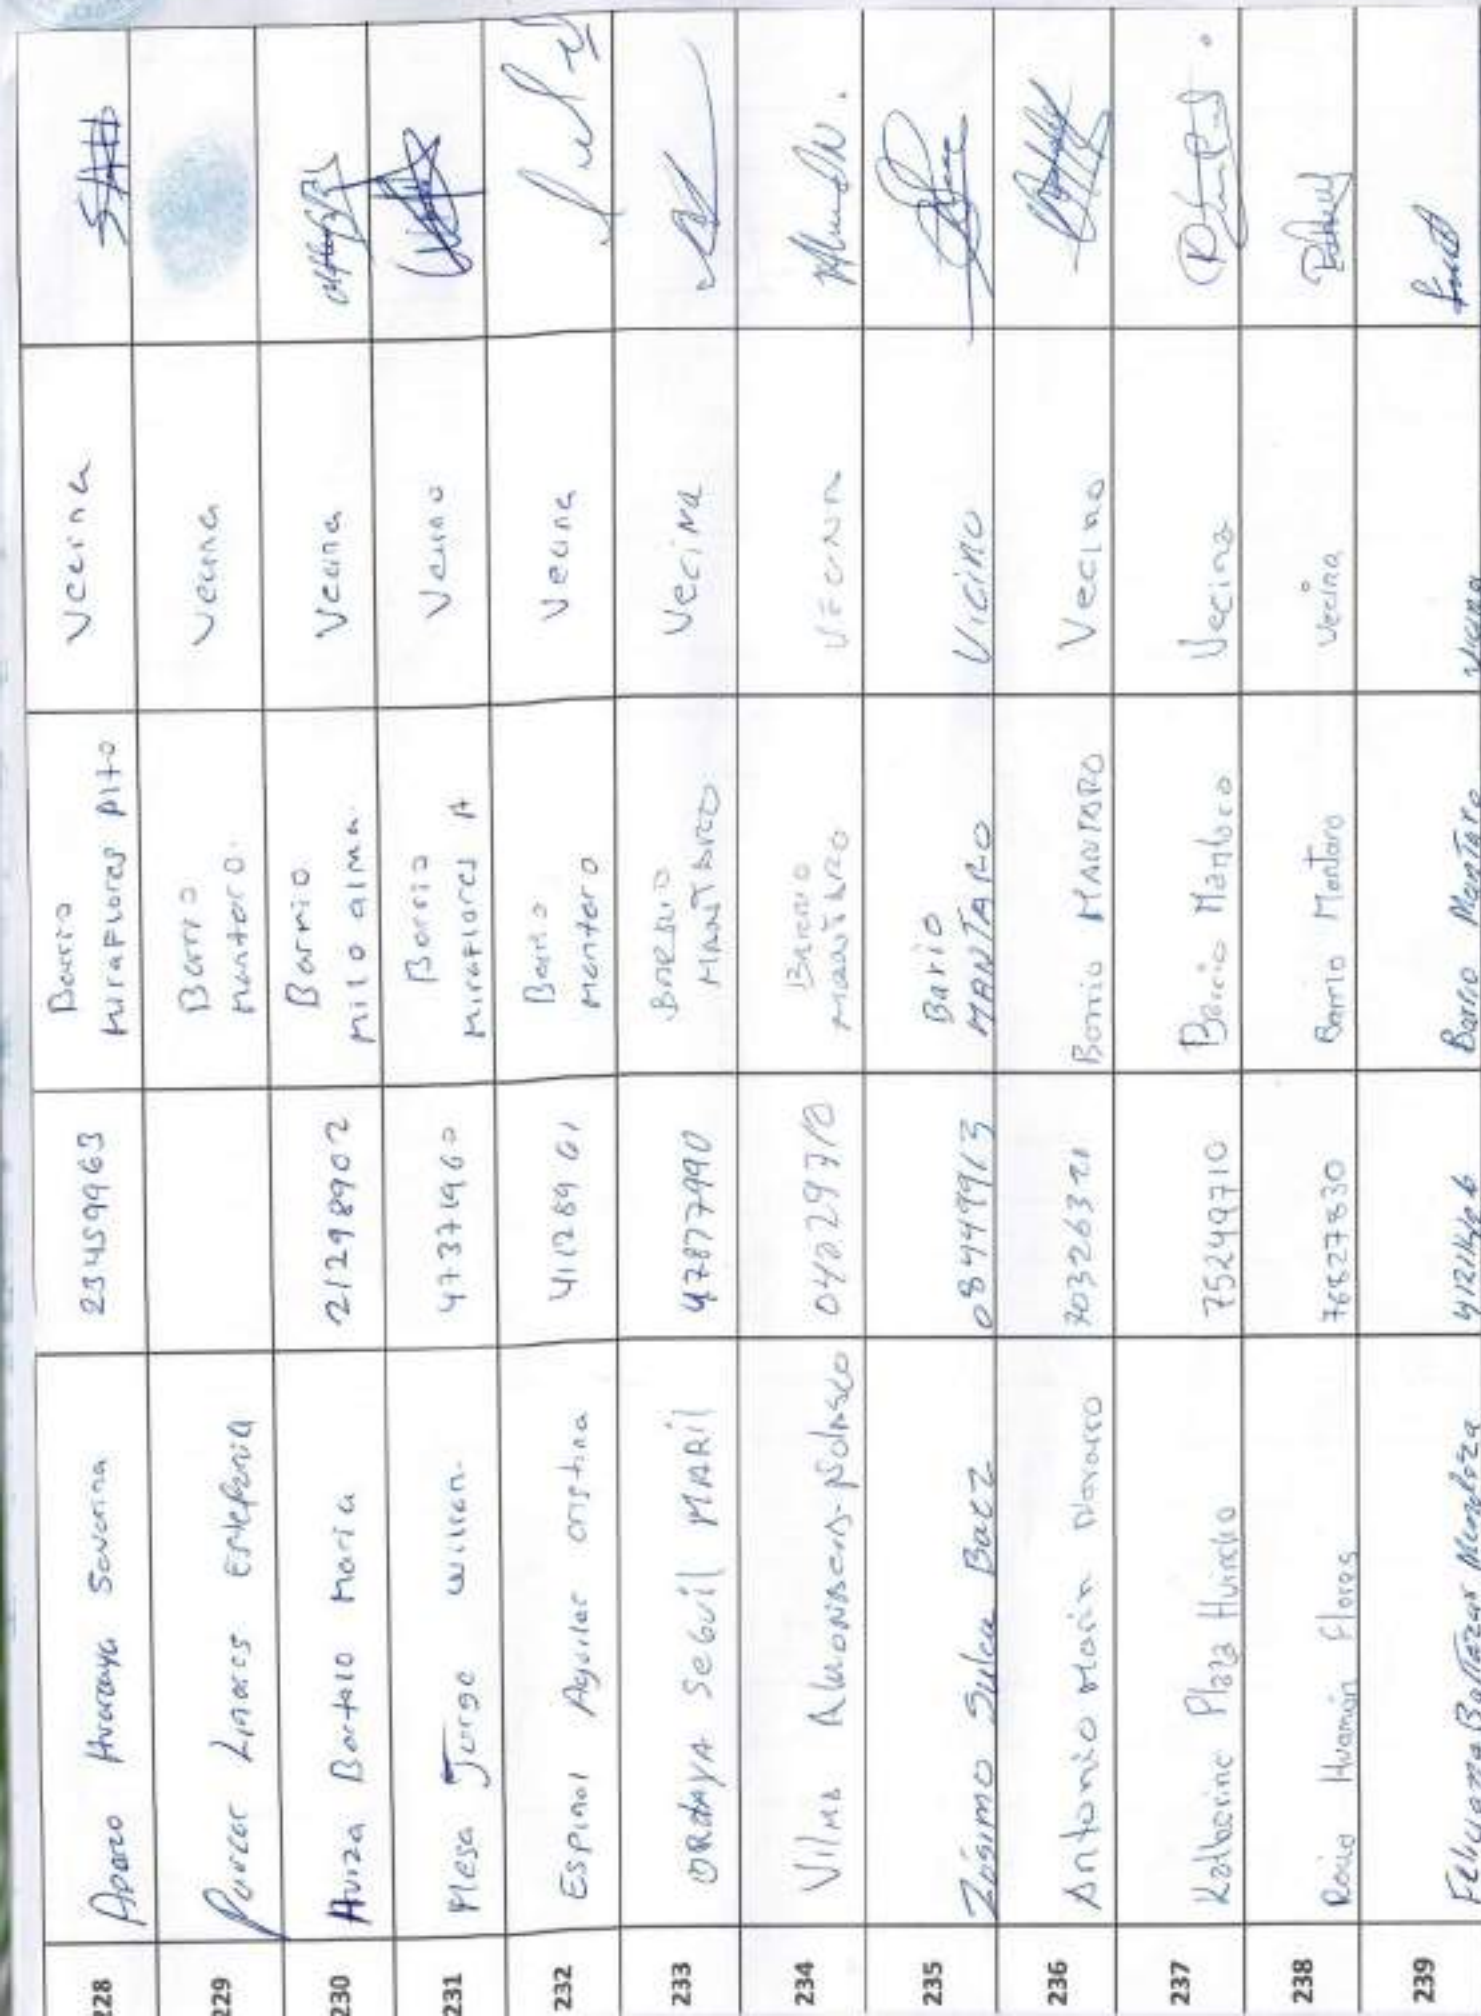 228 Aparco Huaraya Severina 23459963 Barrio Miraflores Alto Vecina
229 Paucar Linares Estefania Barrio Mantaro. Vecina
230 Auiza Bartolo Maria 21298902 Barrio Milo alma. Vecina
231 Mesa Jorge Wilian. 47371960 Barrio Miraflores A Vecino
232 Espinal Aguilar Cristina 41128961 Barrio Mantaro Vecina
233 ORdAYA SeGUil MARil 47877990 BARRIO MANTARO. VeciNa
234 Vilma 04029710 BARRIO MANTARO VECINA
235 Zósimo Sulca Baez 08449913 Barrio MANTARO Vicino
236 Antonio Marin Navarro 70326321 Barrio MANTARO Vecino
237 Katherine Plaza Huincho 75249710 Barrio Mantaro Vecina
238 Rocio Huamán Flores 76827830 Barrio Mantaro Vecina
239 Feliciana Baltazar Mendoza Barrio Mantaro Vecina